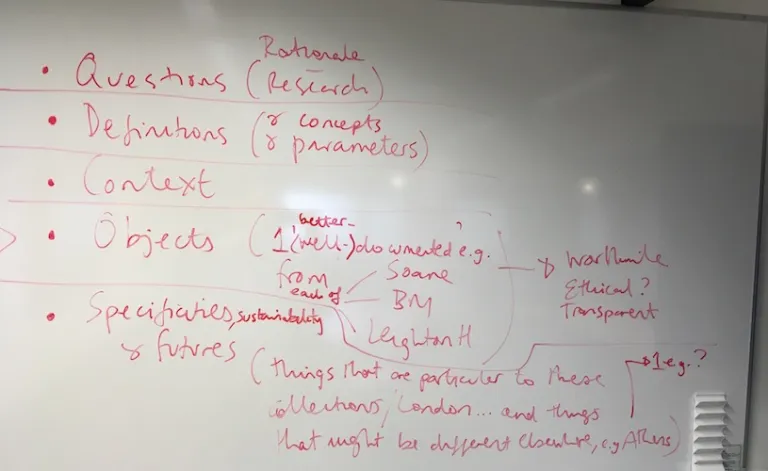 Rationale
• Questions (Research)
• Definitions (& concepts
& parameters)
• Context
better-
• Objects (1 (well-)documented e.g.?
from each of
Soane
BM
Leighton H
→ Worthwhile
Ethical?
Transparent
• Specificities, sustainability
& futures
(things that are particular to these
collections, London... and things
that might be different elsewhere, e.g. Athens)
→ 1 e.g.?